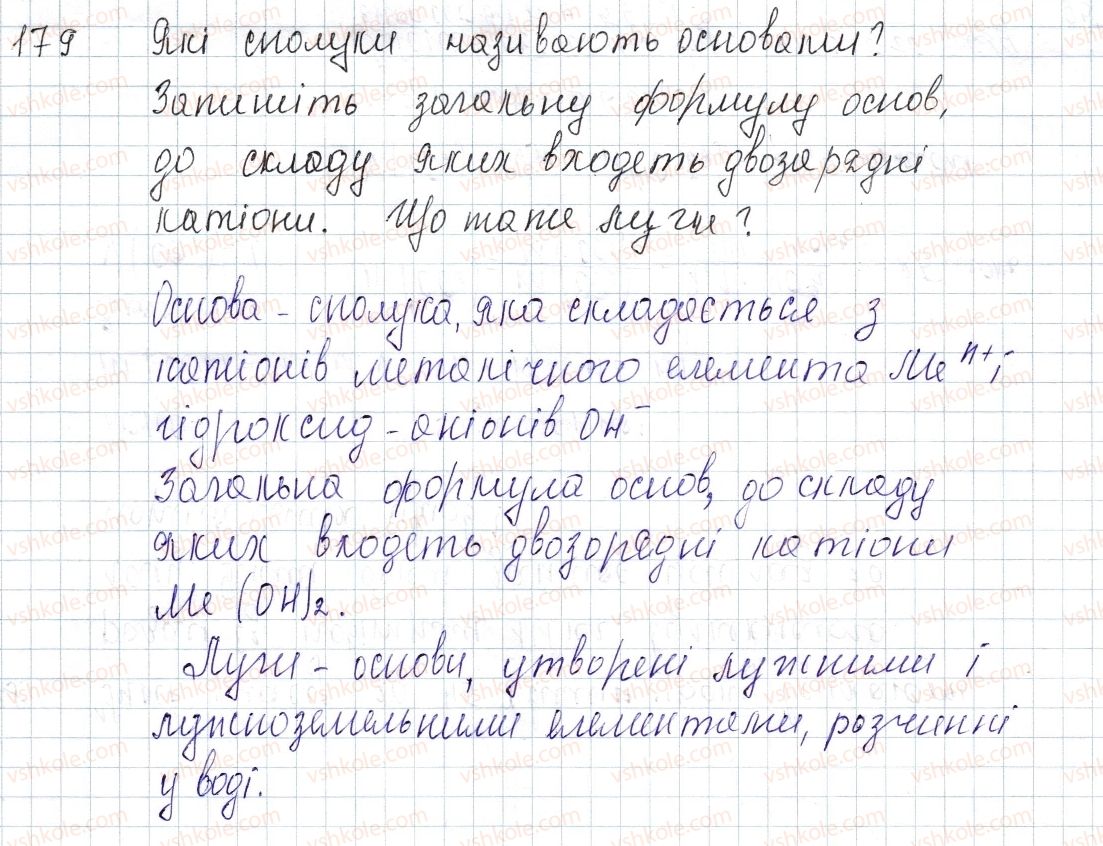 179 Які сполуки називають основами?
Запишіть загальну формулу основ,
до складу яких входеть двозарядні
катіони. Що таке луги?
Основа - сполука, яка складається з
катіонів металічного елемента Meⁿ⁺ і
гідроксид - аніонів OH⁻
Загальна формула основ, до складу
яких входеть двозорядні катіони
Me (OH)₂.
Луги - основи, утворені лужними і
лужноземельними елементами, розчинні
у воді.